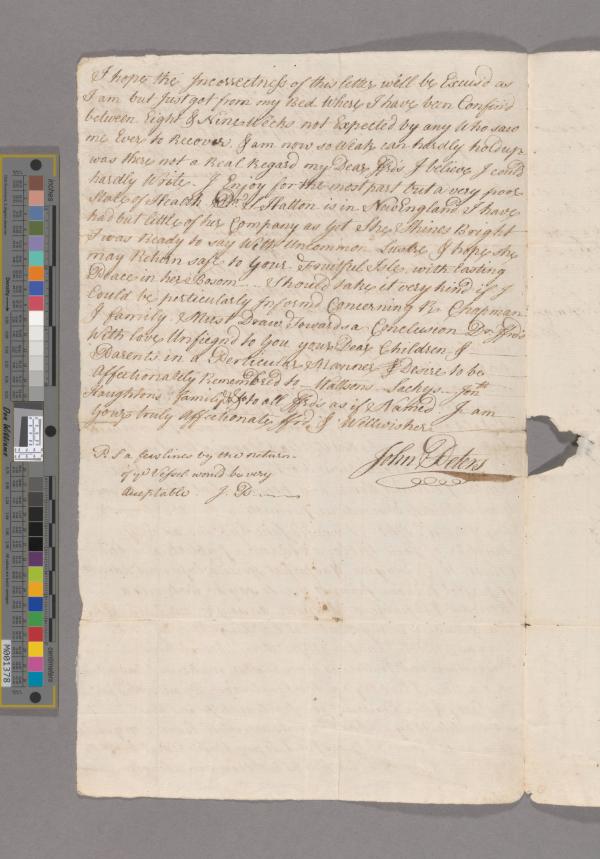 I hope the Incorrectness of this letter will be Excus'd as
I am but Just got from my Bed Where I have been Confin'd
between Eight & Nine Weeks not Expected by any Who saw
me Ever to Recover, & am now so Weak can hardly holdup
was there not a Real Regard my Dear ffrds I believe I could
hardly Write I Enjoy for the most part but a very poor
State of Health Hatton is in NewEngland I have
had but little of her Company as yet She Shines Bright
I was Ready to say With Uncommon Lustre I hope she
may Return safe to Your Fruitfull Isle with lasting
Peace in her Bosom I should take it very kind if I
Could be perticularly Inform'd Concerning R Chapman
& family Must Draw Towards a Conclusion Dr ffrds
With love Unfeign'd to You your Dear Children &
Parents in a Perticular Manner & Desire to be
Affectionately Remembred to Watsons Lachys Jonth
Haughtons family & to all ffrds as if Named I am
Yours truly Affectionate ffrd & Wellwisher
John Peters
P S a few lines by the return
of ye Vessel would be very
Aceptable J. P.
inches
centimeters
Don Williams
M001378